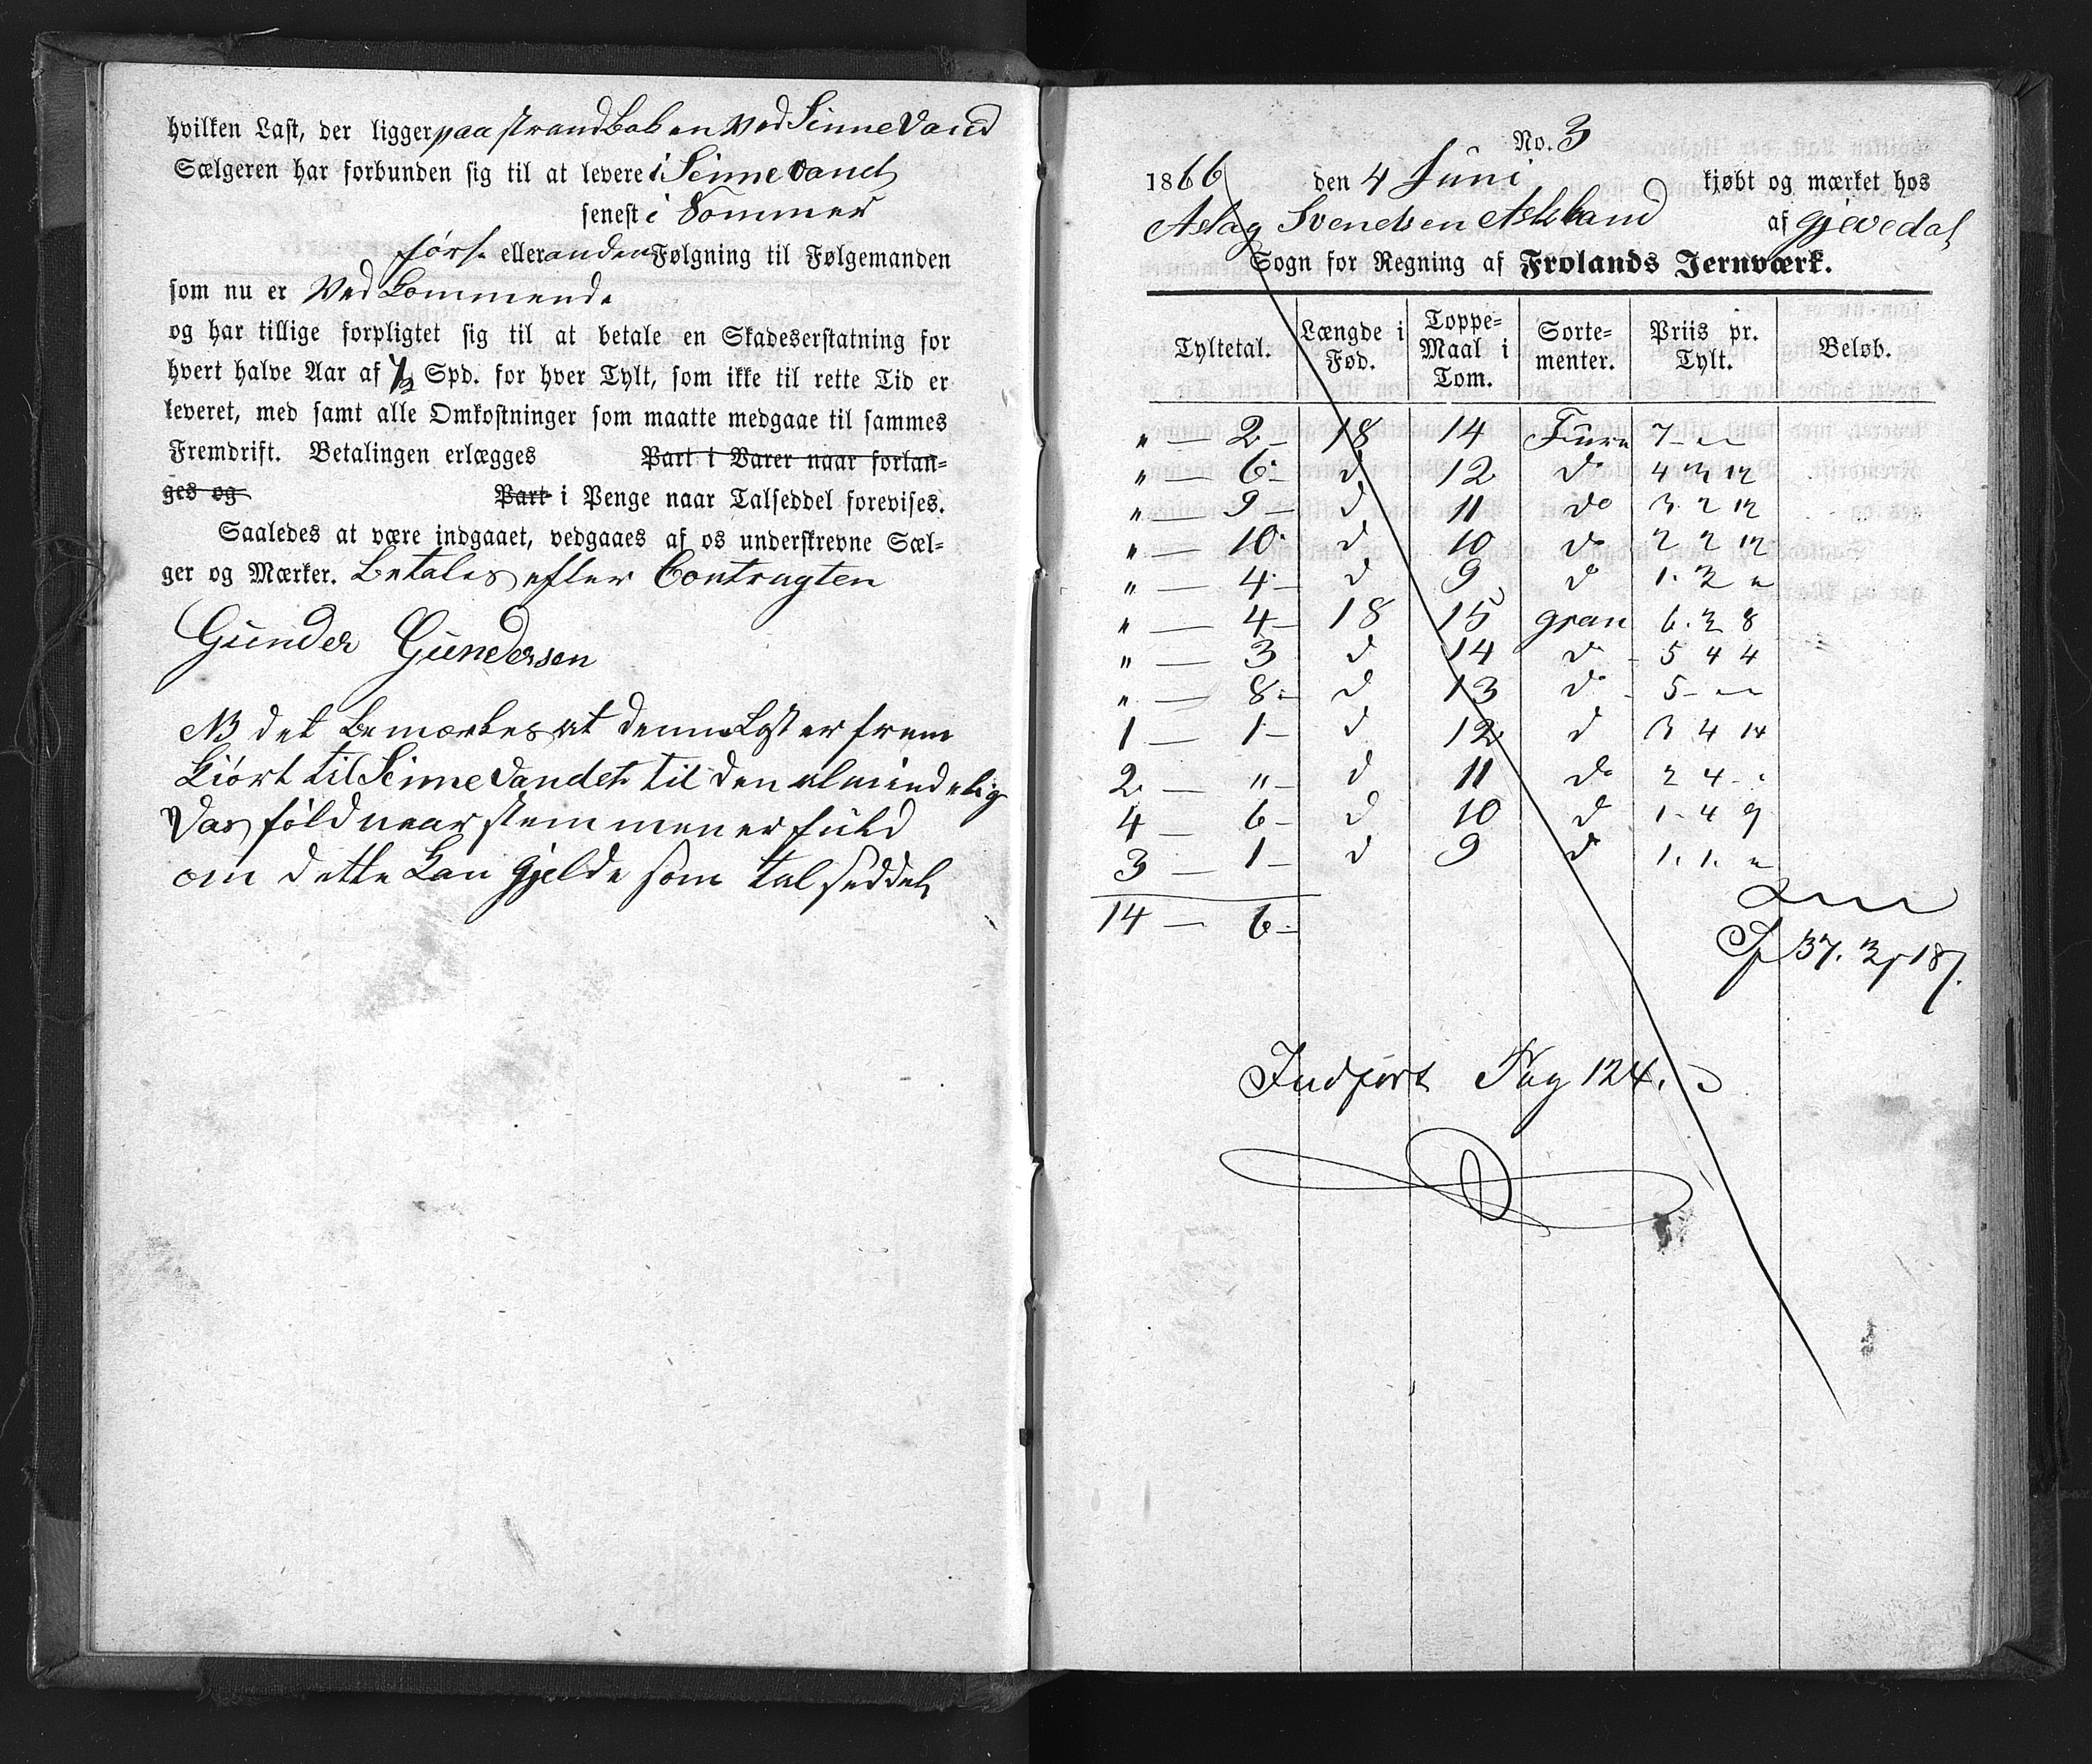 hvilken Last, der ligger paa strandbaken ved Sinnevand
Sælgeren har forbunden sig til at levere i Sinnevand
senest i Sommer
første eller anden Følgning til Følgemanden
som nu er Vedkommende
og har tillige forpligtet sig til at betale en Skadeserstatning for
hvert halve Aar af 1/2 Spd. for hver Tylt, som ikke til rette Tid er
leveret, med samt alle Omkostninger som maatte medgaae til sammes
Fremdrift. Betalingen erlægges Part i Varer naar forlan-
ges og Part i Penge naar Talseddel forevises.
Saaledes at være indgaaet, vedgaaes af os underskrevne Sæl-
ger og Mærker. Betales efter Contragten
Gunder Gundersen
NB det bemærkes at denne Last er frem
kiørt til Sinnevandet til den almindelig
Vas föld naar stemmen er fuld
om dette kan gjelde som talseddel
No. 3
1866 den 4 Juni kjøbt og mærket hos
Aslag Svendsen Askland af Gjevedal
Sogn for Regning af Frolands Jernværk.
Tyltetal. Længde i Fod. Toppe-Maal i Tom. Sorte-menter. Priis pr. Tylt. Beløb.
" — 2 — 18 14 Furu 7 - "
" — 6 — d 12 do 4 3 12
" — 9 — d 11 do 3 2 12
" — 10 — d 10 do 2 2 12
" — 4 — d 9 d 1. 3 "
" — 4 — 18 15 gran 6. 3 8
" — 3 d 14 do 5 4 4
" — 8 — d 13 do 5 - "
1 — 1 — d 12 d 3 4 14
2 — " — d 11 do 2 4 -
4 — 6 — d 10 d 1 - 4 9
3 — 1 — d 9 d 1. 1. "
14 — 6 —
Sp 37. 3 / 18 /.
Indført Pag 124.